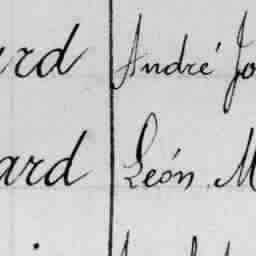 ard André Jo
ard León. M